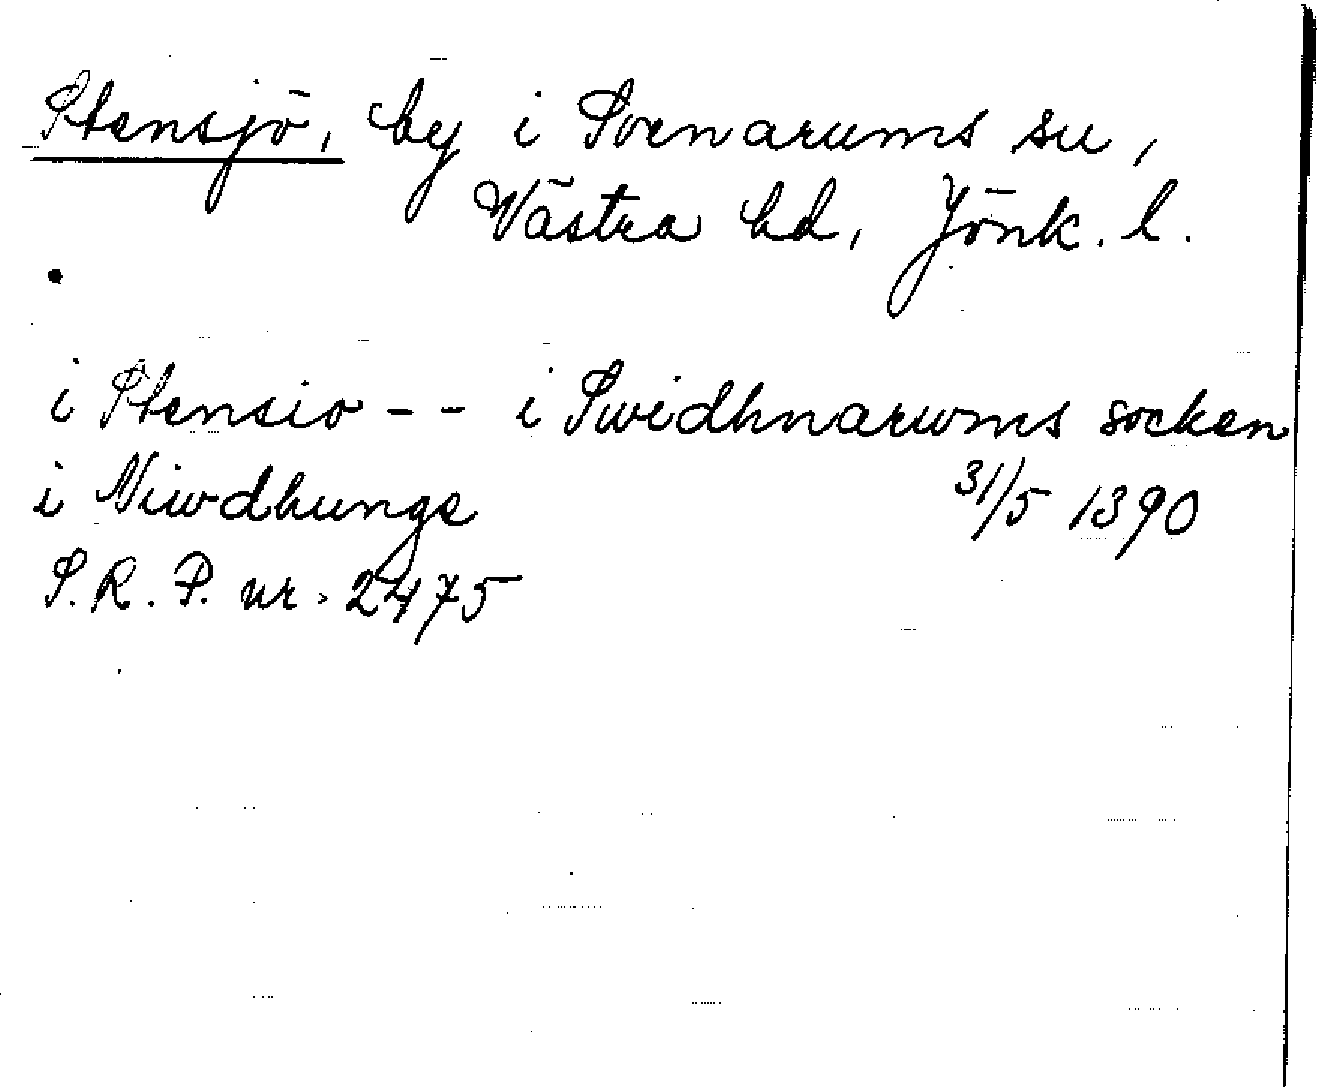 Stensjö, by i Svenarums sn,
Västra hd, Jönk. l.
i Stensio - - i Swidhnarwms socken
i Niwdhungs 31/5 1390
S.R.P. nr. 2475